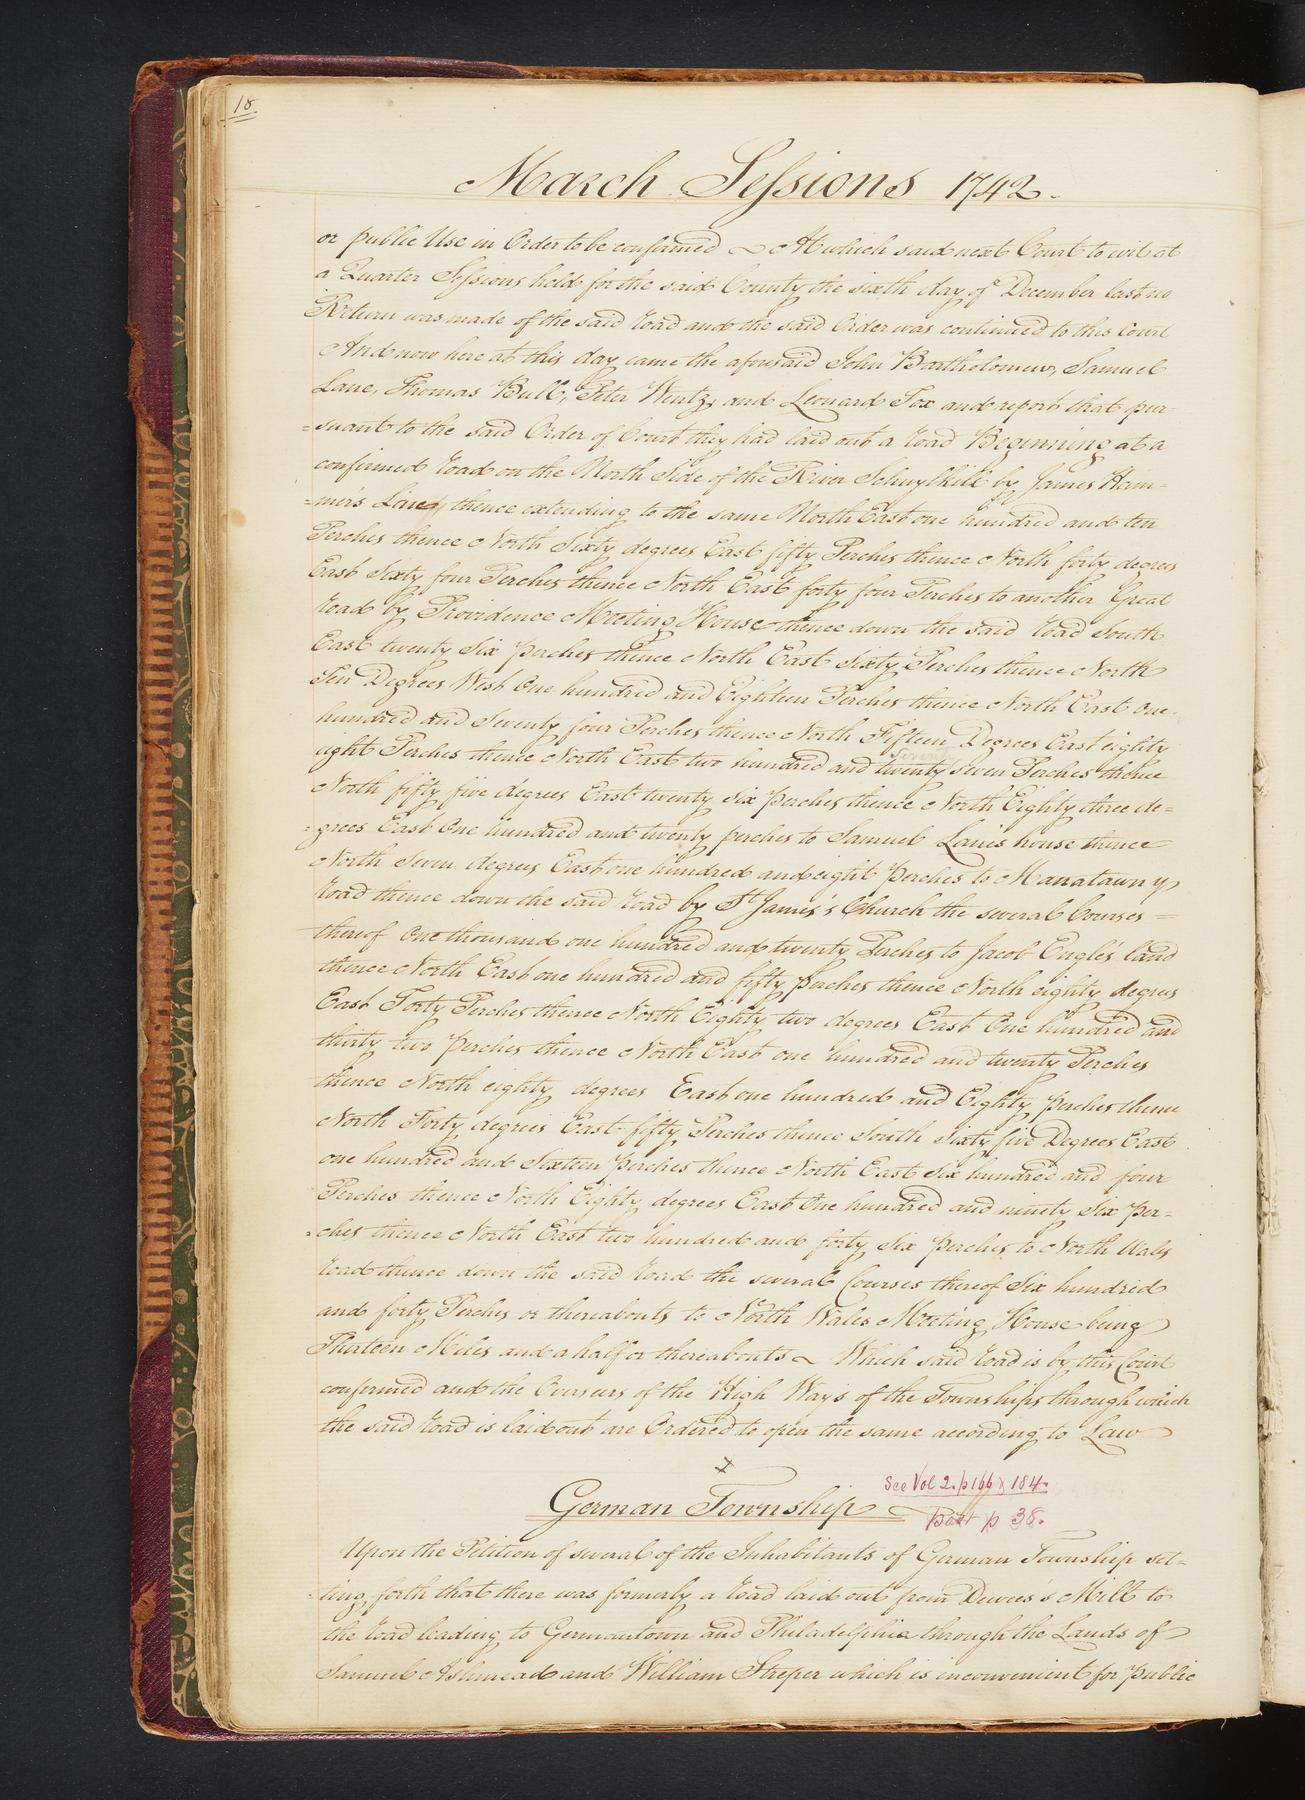 18.
March Sessions 1742.
or public Use in Order to be confirmed ~ At which said next Court to wit at
a Quarter Sessions held for the said County the sixth day of December last no
Return was made of the said Road and the said Order was continued to this Court
And now here at this day came the aforesaid John Bartholomew, Samuel
Lane, Thomas Bull, Peter Wentz, and Leonard Fox and report that per-
=suant to the said Order of Court they had laid out a Road Beginning at a
confirmed Road on the North Side of the River Schuylkill by James Ham-
=mer's Line thence extending to the same North East one hundred and ten
Perches thence North Sixty degrees East fifty Perches thence North forty degrees
East Sixty four Perches thence North East forty four Perches to another Great
Road by Providence Meeting House thence down the said Road South
East twenty Six perches thence North East Sixty Perches thence North
Ten Degrees West One hundred and Eighteen Perches thence North East One
hundred and Seventy four Perches thence North Fifteen Degrees East eighty
eight Perches thence North East two hundred and twenty seven Perches thence
North fifty five degrees East twenty six perches thence North Eighty three de=
=grees East One hundred and twenty perches to Samuel Lane's house thence
North Seven degrees East one hundred and eight Perches to Manatawny
Road thence down the said Road by St James's Church the several Courses =
thereof One thousand one hundred and twenty Perches to Jacob Engle's land
thence North East one hundred and fifty perches thence North eighty degrees
East Forty Perches thence North Eighty two degrees East One hundred and
thirty two perches thence North East one hundred and twenty Perches
thence North eighty degrees East one hundred and Eighty perches thence
North Forty degrees East fifty Perches thence South sixty five Degrees East
one hundred and Sixteen perches thence North East Six hundred and four
Perches thence North Eighty degrees East One hundred and ninety Six per=
=ches thence North East two hundred and forty six perches to North Wales
Road thence down the said Road the several Courses thereof Six hundred
and forty Perches or thereabouts to North Wales Meeting House being
Thirteen Miles and a half or thereabouts ~ Which said Road is by this Court
confirmed and the Overseers of the High Ways of the Townships through which
the said Road is laid out are Ordered to open the same according to Law
x
German Township See Vol 2. p 166 & 184.
post p 38.
Upon the Petition of several of the Inhabitants of German Township set=
=ting forth that there was formerly a Road laid out from Dewees's Mill to
the Road leading to Germantown and Philadelphia through the Lands of
Samuel Ashmead and William Streper which is inconvenient for public